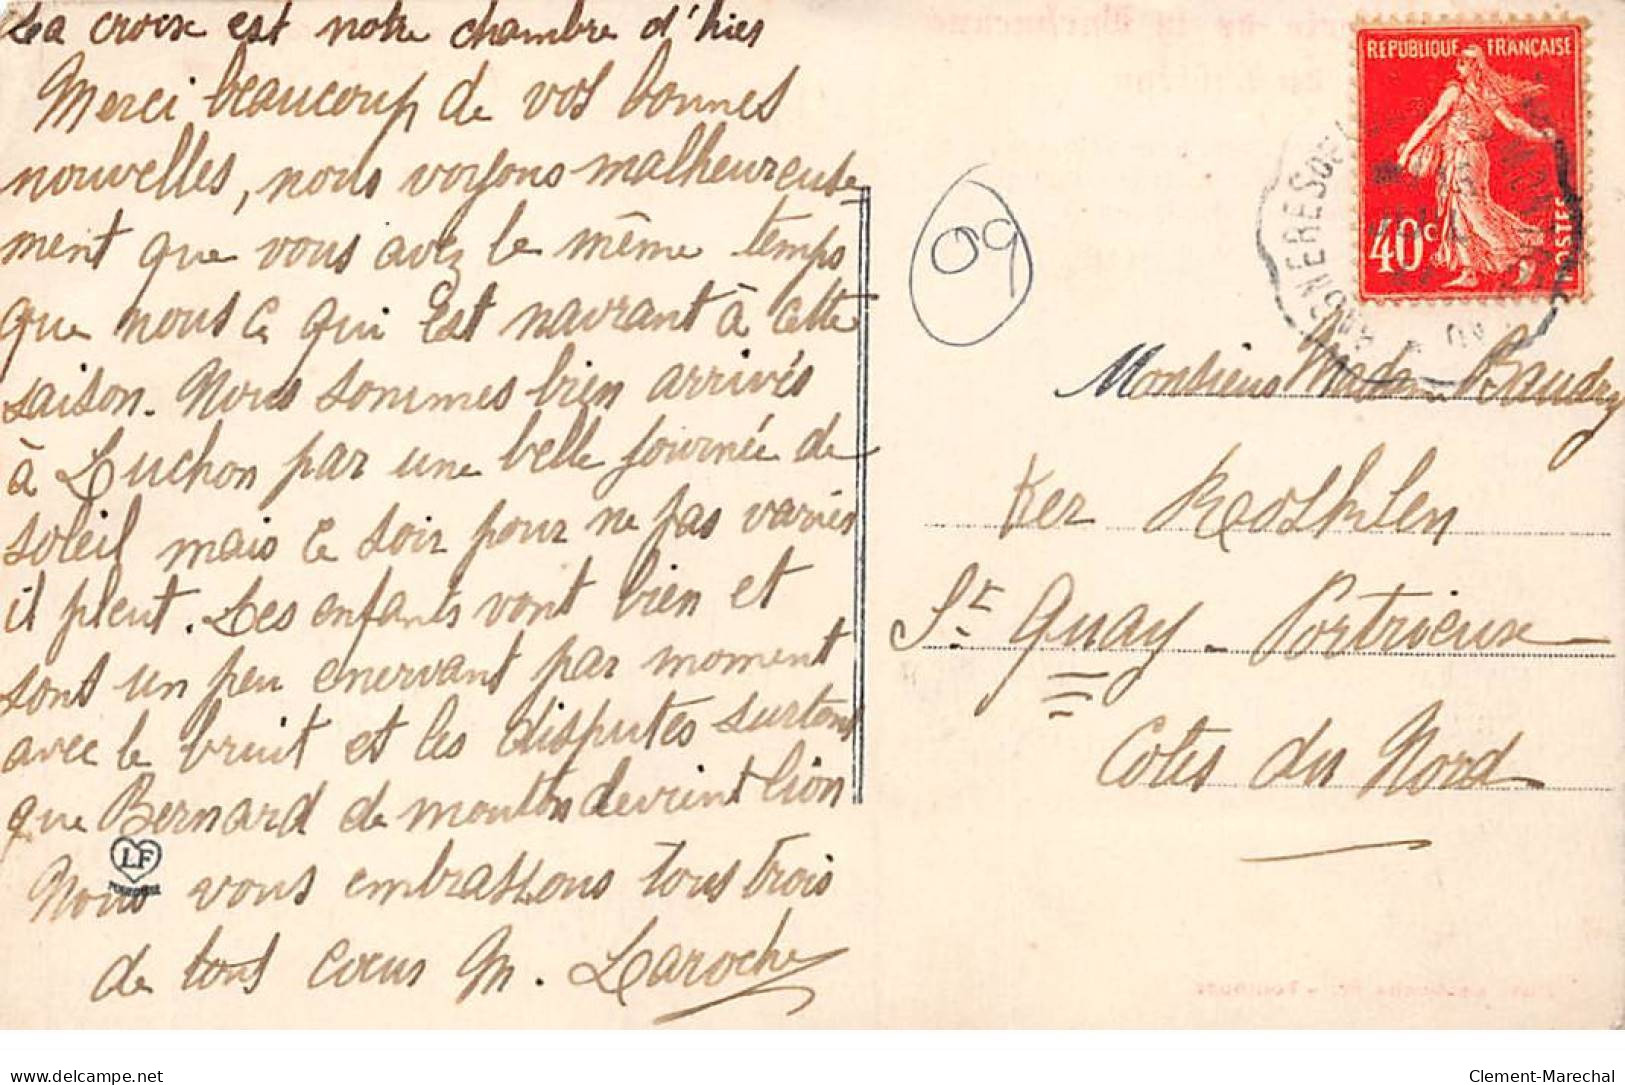 La croix est notre chambre d'hier
Merci beaucoup de vos bonnes
nouvelles, nous voyons malheureuse
ment que vous avez le même temps
que nous ce qui est navrant à cette
saison. Nous sommes bien arrivés
à Luchon par une belle journée de
soleil mais ce soir pour ne pas varier
il pleut. Les enfants vont bien et
sont un peu enervant par moment
avec le bruit et les disputes surtout
que Bernard de mouton devient lion
Nous vous embrassons tous trois
de tous cœurs M. Laroche
LF
09
REPUBLIQUE FRANÇAISE
40c
POSTES
Monsieur Madame Baudry
Ker
St Quay - Portrieux
Cotes du Nord
Clement-Marechal
delcampe.net